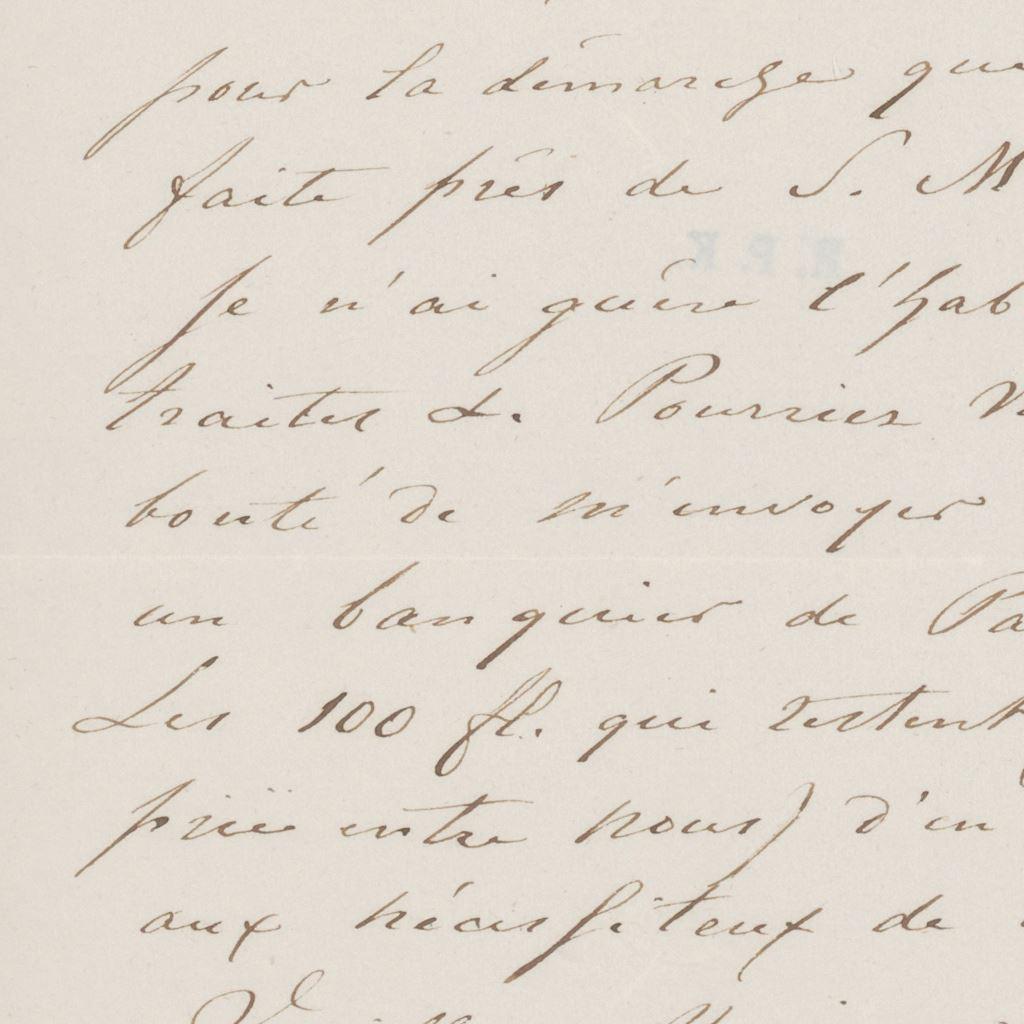 pour la démarche que
faite près de S. M
Je n'ai guère l'hab
traites &. Pourriez
bonté de m'envoyer
un banquier de Pa
Les 100 fl. qui restent
priée entre nous) d'en
aux nécessiteux de